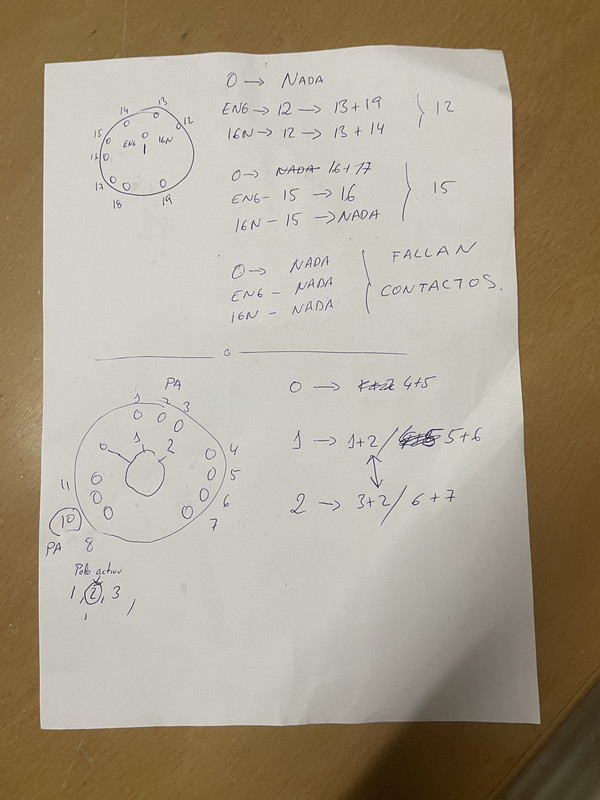 O → NADA
ENG → 12 → 13+19
IGN → 12 → 13+14
} 12
14
13
12
15
ENG
IGN
1
16
17
18
19
O → NADA 16+17
ENG - 15 → 16
IGN - 15 → NADA
} 15
O → NADA
ENG - NADA
IGN - NADA
} FALLAN
CONTACTOS.
o
PA
1 2 3
O 1 2
4
5
6
7
8
11
10
PA
O → 1+2 4+5
1 → 1+2 / 5+6
2 → 3+2 / 6+7
Polo activo
1, 2, 3